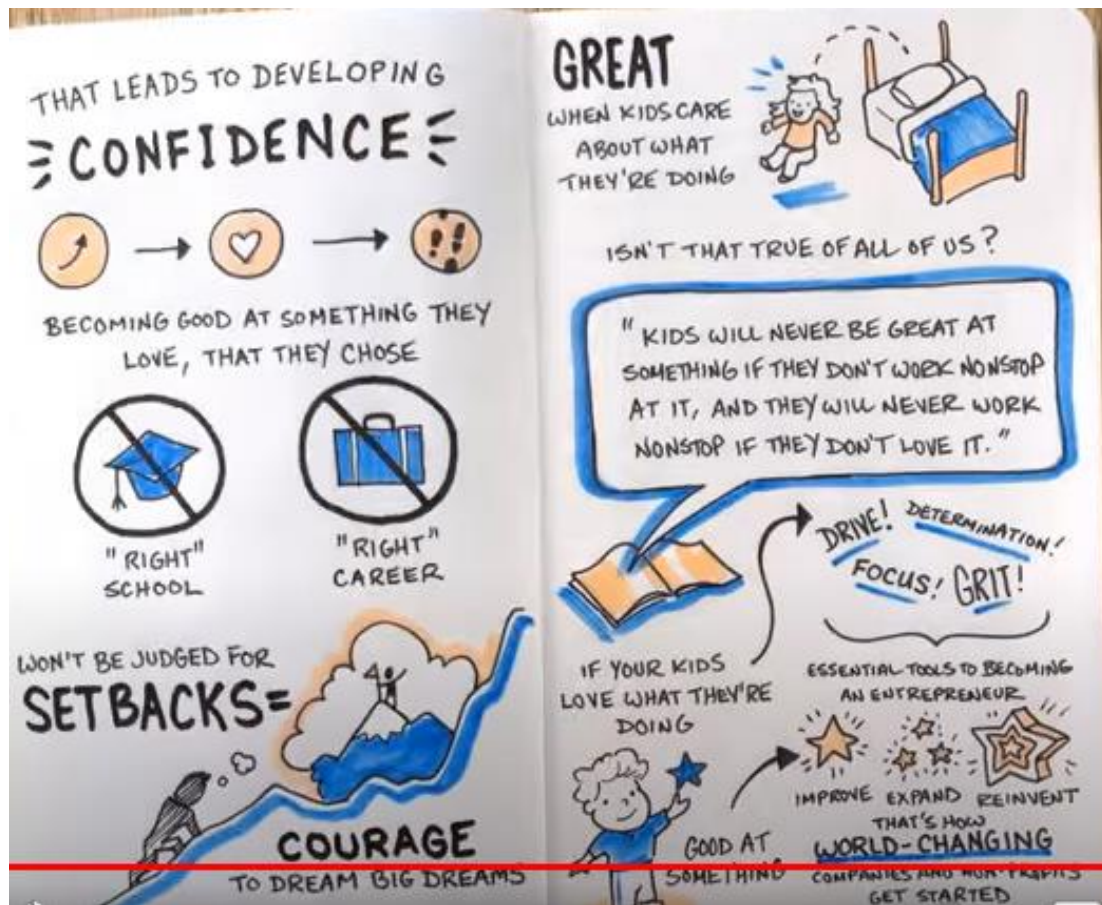 THAT LEADS TO DEVELOPING
CONFIDENCE
BECOMING GOOD AT SOMETHING THEY
LOVE, THAT THEY CHOSE
"RIGHT"
SCHOOL
"RIGHT"
CAREER
WON'T BE JUDGED FOR
SETBACKS=
COURAGE
TO DREAM BIG DREAMS
GREAT
WHEN KIDS CARE
ABOUT WHAT
THEY'RE DOING
ISN'T THAT TRUE OF ALL OF US?
"KIDS WILL NEVER BE GREAT AT
SOMETHING IF THEY DON'T WORK NONSTOP
AT IT, AND THEY WILL NEVER WORK
NONSTOP IF THEY DON'T LOVE IT."
DRIVE! DETERMINATION!
FOCUS! GRIT!
IF YOUR KIDS
LOVE WHAT THEY'RE
DOING
ESSENTIAL TOOLS TO BECOMING
AN ENTREPRENEUR
GOOD AT
SOMETHING
IMPROVE EXPAND REINVENT
THAT'S HOW
WORLD-CHANGING
COMPANIES AND NON-PROFITS
GET STARTED